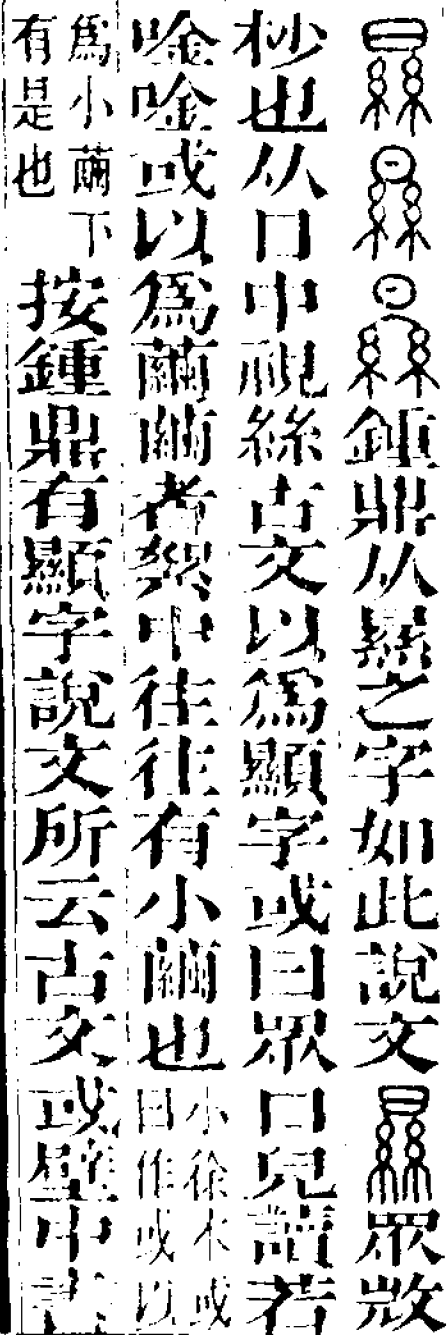 㬎㬎㬎鍾鼎从㬎之字如此說文㬎眾𢼸
杪也从日中視絲古文以爲顯字或曰眾口皃讀若
唫唫或以爲繭繭者絮中往往有小繭也小徐本或曰作或以
爲小繭下有是也按鍾鼎有顯字說文所云古文或壁中書